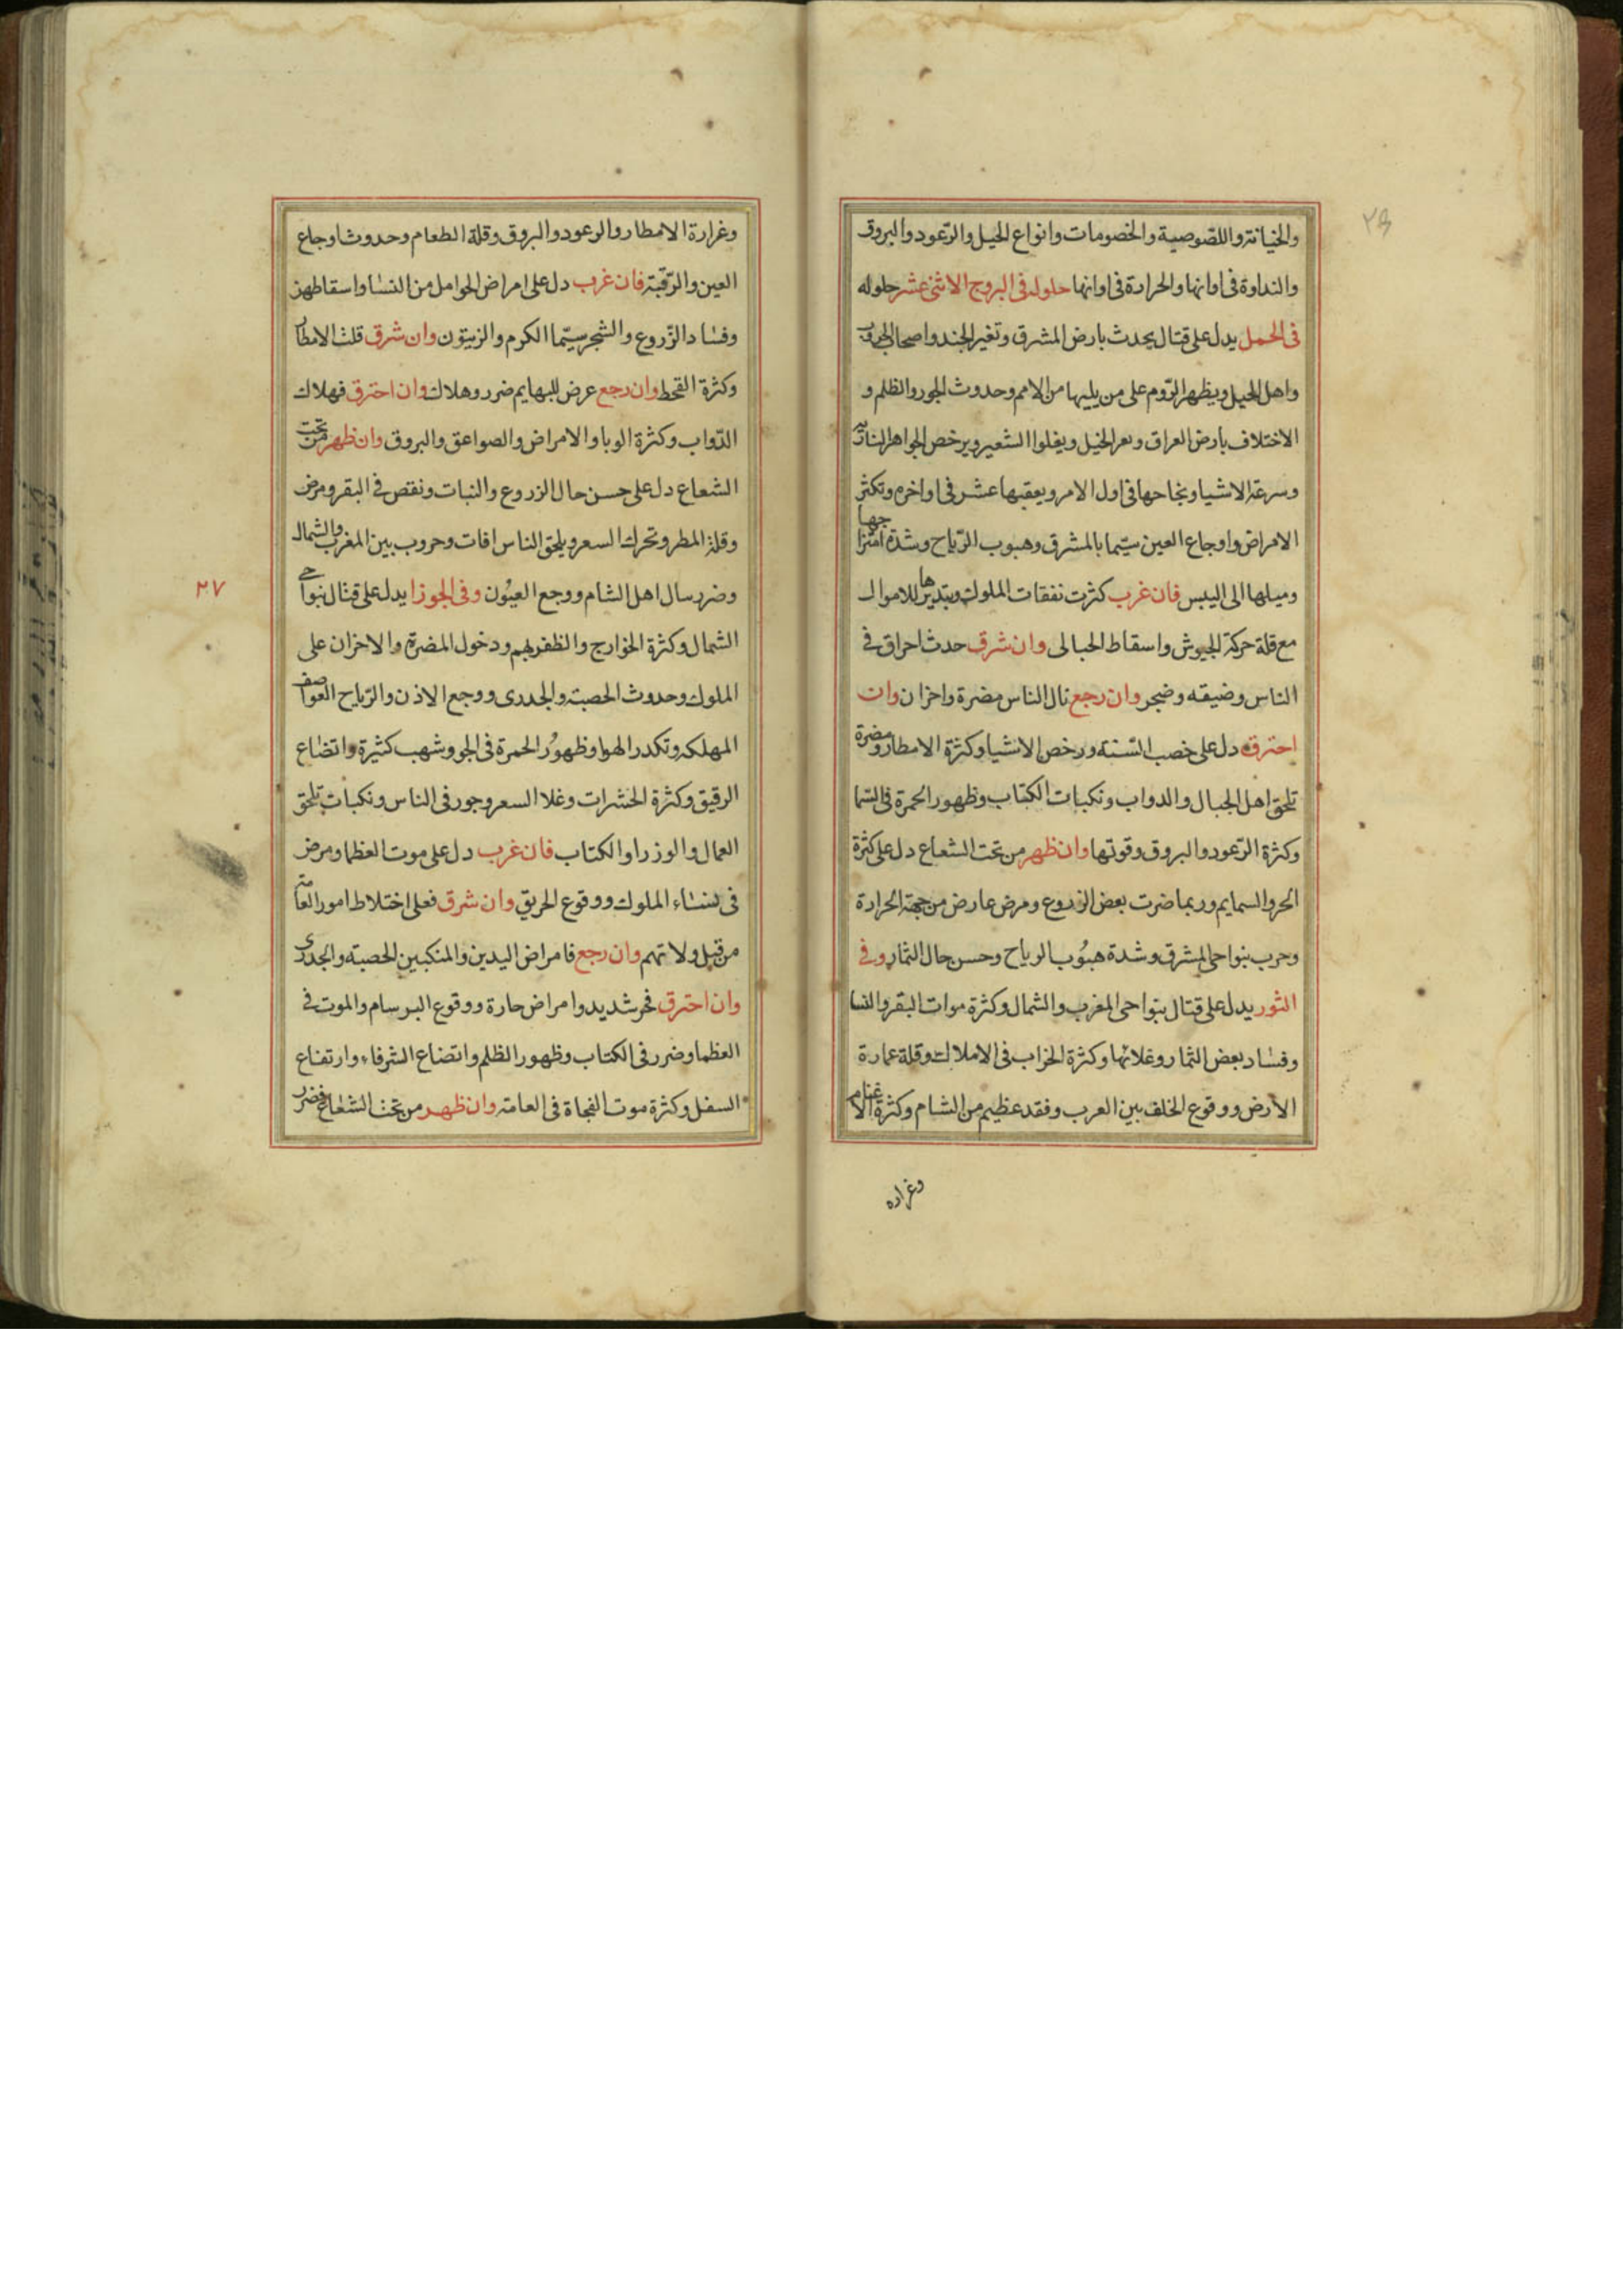 والخيانة واللصوصية والخصومات وانواع الحيل والرّعود والبروق
والنداوة فى اوانها والحرارة فى اوانها حلوله فى البروج الاثنى عشر حلوله
فى الحمل يدل على قتال يحدث بارض المشرق وتغير الجند واصحاب الحروب
واهل الحيل ويظهر الرّوم على من يليها من الامم وحدوث الجور والظلم و
الاختلاف بارض العراق ويعز الخيل ويغلوا الشعير ويرخص الجواهر النارية
وسرعة الاشيا ونجاحها فى اول الامر ويعقبها عسر فى اواخره وتكثر
الامراض واوجاع العين سيّما بالمشرق وهبوب الرّياح وشدة امتزاجها
وميلها الى اليبس فان غرب كثرت نفقات الملوك وتبذيرها للاموال
مع قلة حركة الجيوش واسقاط الحبالى وان شرق حدث احراق فى
الناس وضيقه وضجر وان رجع نال الناس مضرة واحزان وان
احترق دل على خصب السّنة ورخص الاشيا وكثرة الامطار ومضرة
تلحق اهل الجبال والدواب ونكبات الكتاب وظهور الحمرة فى السّما
وكثرة الرّعود والبروق وقوتها وان ظهر من تحت الشعاع دل على كثرة
الحر والسمايم وربما ضرت بعض الزروع ومرض عارض من جهة الحرارة
وحرب بنواحى المشرق وشدة هبُوب الرياح وحسن حال الثمار وفى
الثور يدل على قتال بنواحى المغرب والشمال وكثرة موات البقر والنسا
وفساد بعض الثمار وغلاتها وكثرة الخراب فى الاملاك وقلة عمارة
الارض ووقوع الخلف بين العرب وفقد عظيم من الشام وكثرة الاغنام
وغراره
وغرارة الامطار والرعود والبروق وقلة الطعام وحدوث اوجاع
العين والرّقبة فان غرب دل على امراض الحوامل من النسا واسقاطهن
وفساد الزّروع والشجر سيّما الكرم والزيتون وان شرق قلت الامطار
وكثرة القحط وان رجع عرض للبهايم ضرر وهلاك وان احترق فهلاك
الدّواب وكثرة الوبا والامراض والصواعق والبروق وان ظهر من تحت
الشعاع دل على حسن حال الزروع والنبات ونقص فى البقر ومرض
وقلة المطر وتحرك السعر ويلحق الناس افات وحروب بين المغرب والشمال
وضرر سال اهل الشام ووجع العيُون وفى الجوزا يدل على قتال بنواحى
٢٧
الشمال وكثرة الخوارج والظفر بهم ودخول المضرة والاحزان على
الملوك وحدوث الحصبة والجدرى ووجع الاذن والرّياح العواصف
المهلكه وتكدر الهوا وظهوُر الحمرة فى الجو وشهب كثيرة واتضاع
الرقيق وكثرة الحشرات وغلا السعر وجور فى الناس ونكبات تلحق
العمال والوزرا والكتاب فان غرب دل على موت العظما ومرض
فى نساء الملوك ووقوع الحريق وان شرق فعلى اختلاط امور العامة
من قبل ولاتهم وان رجع فامراض اليدين والمنكبين الحصبة والجدرى
وان احترق فحر شديد وامراض حارة ووقوع البرسام والموت فى
العظما وضرر فى الكتاب وظهور الظلم واتضاع الشرفاء وارتفاع
السفل وكثرة موت الفجاة فى العامة وان ظهر من تحت الشعاع فضرر